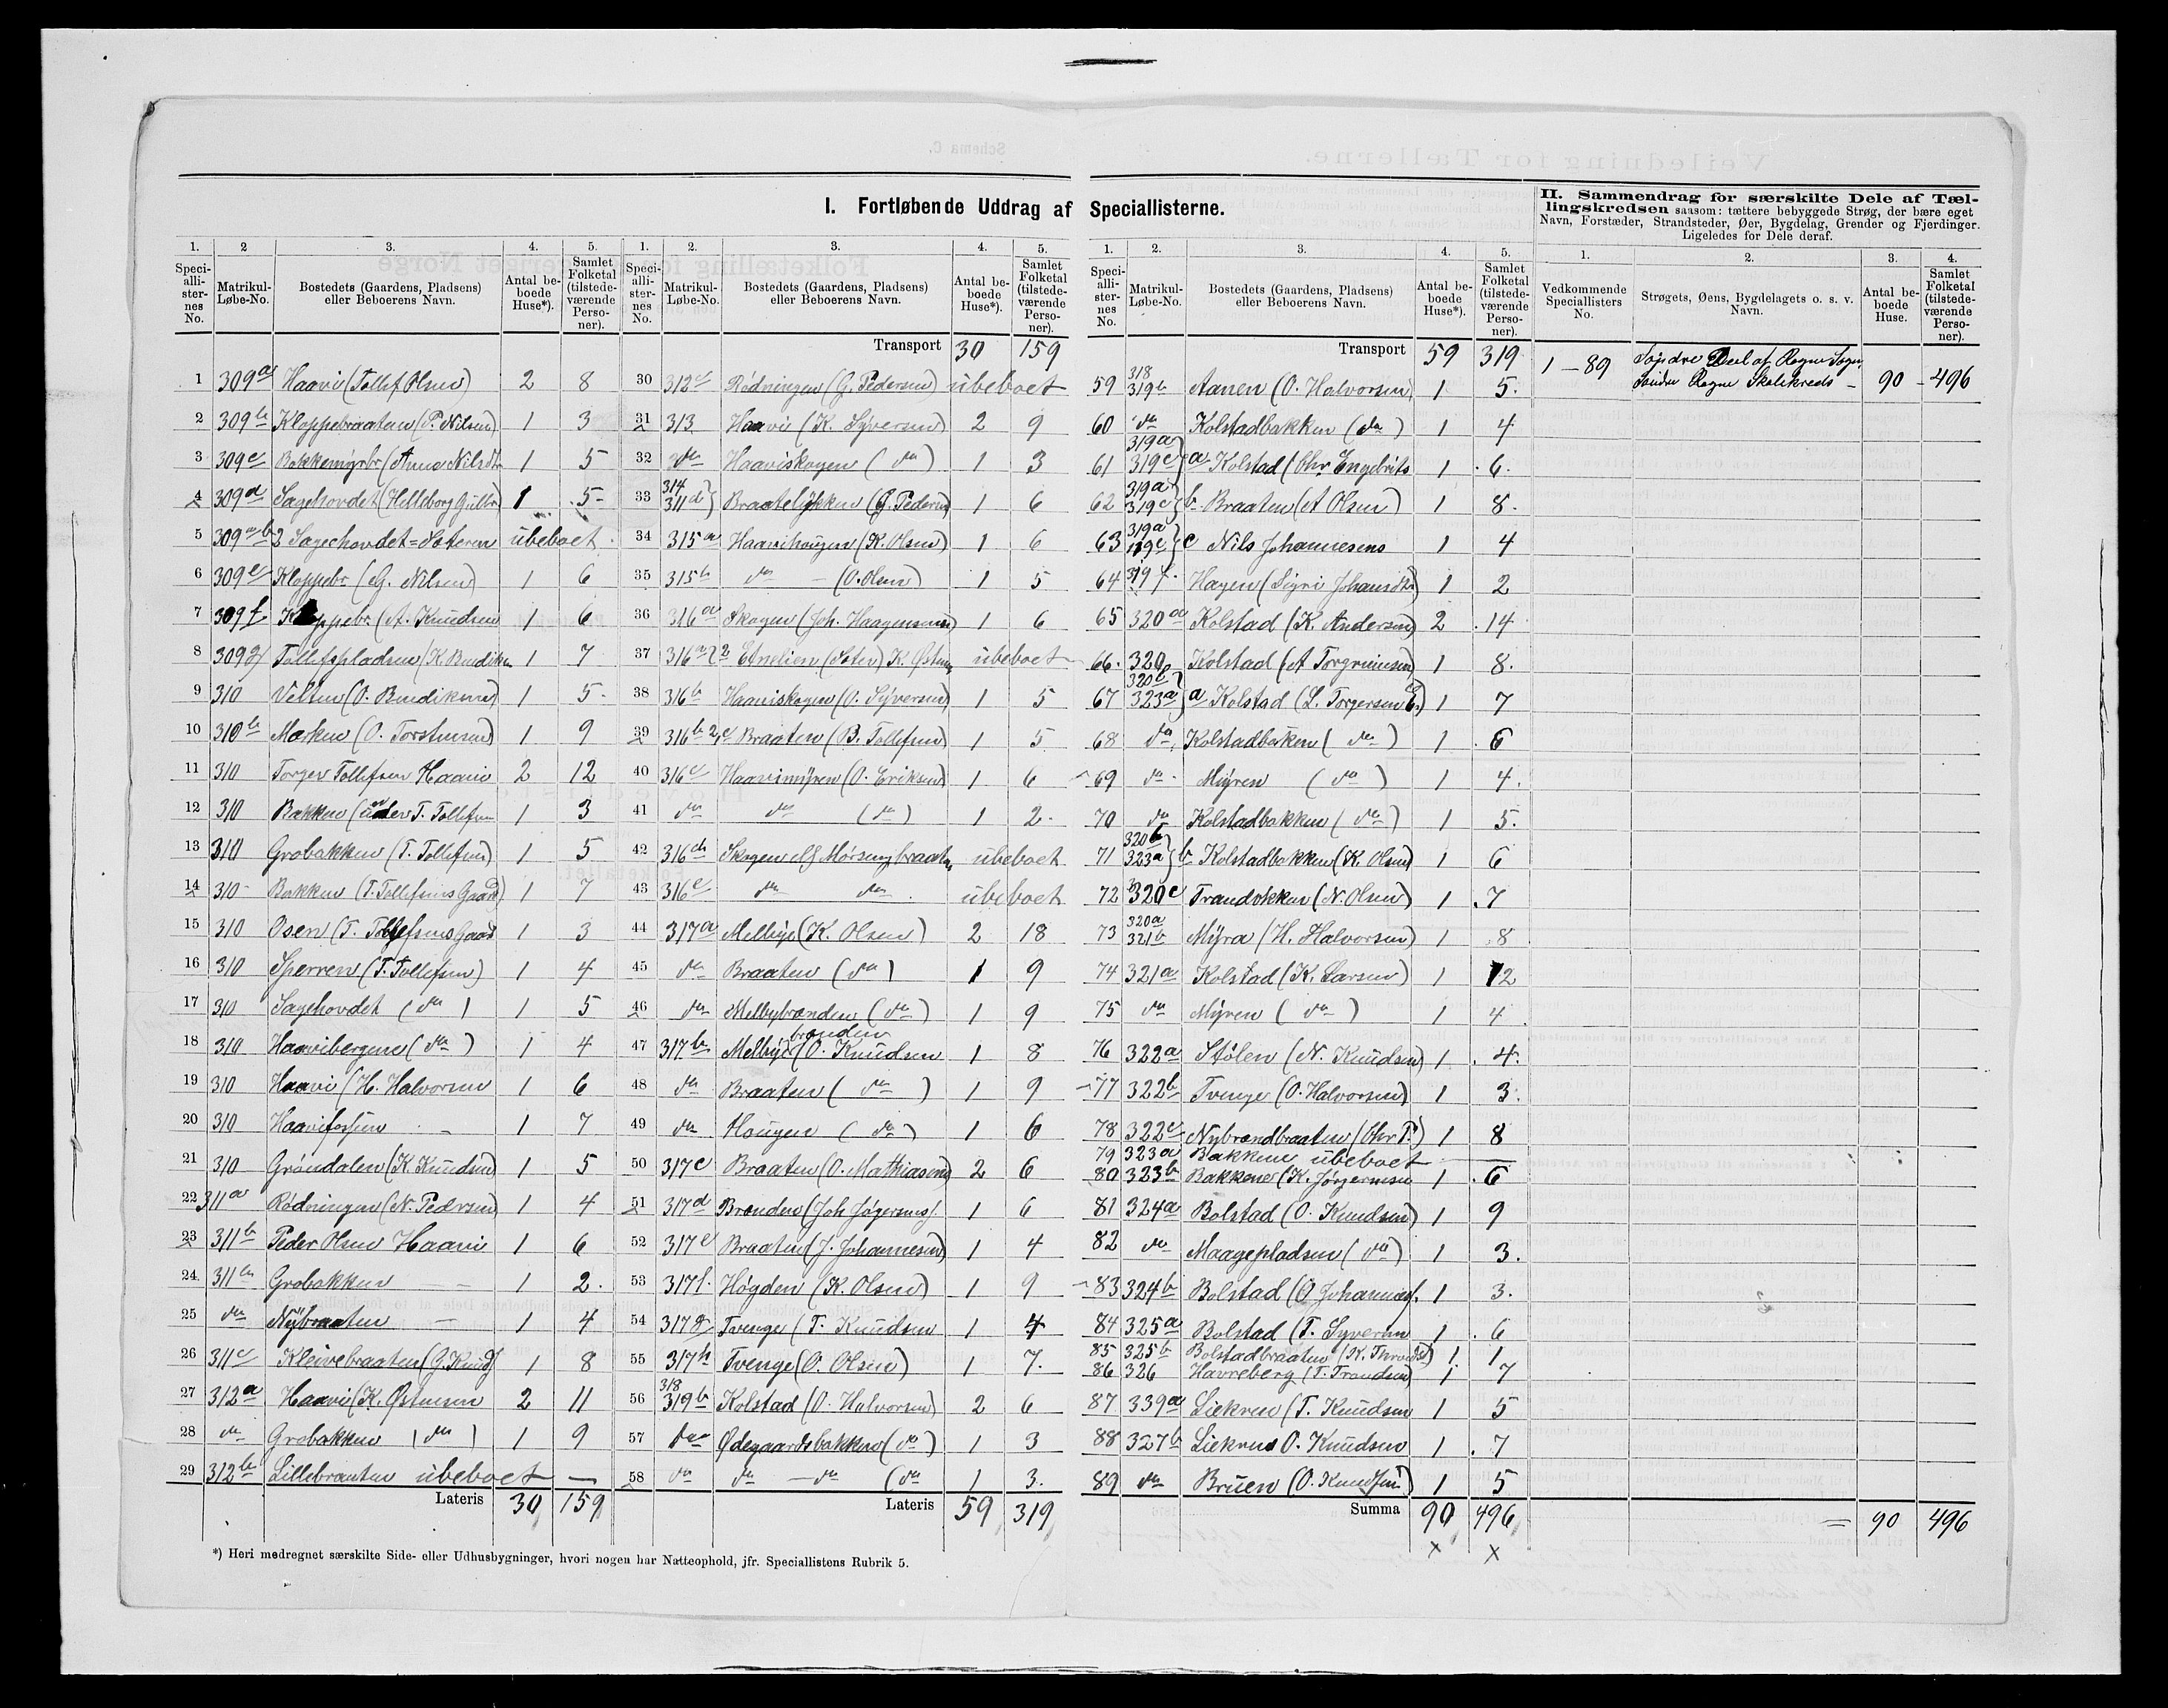 I. Fortløbende Uddrag af Speciallisterne.
II. Sammendrag for særskilte Dele af Tæl-
lingskredsen saasom: tættere bebyggede Strøg, der bære eget
Navn, Forstæder, Strandsteder, Øer, Bygdelag, Grender og Fjerdinger.
Ligeledes for Dele deraf.
1. 2 3. 4. 5.
Speciallisternes No. Matrikul-Løbe-No. Bostedets (Gaardens, Pladsens) eller Beboerens Navn. Antal beboede Huse*). Samlet Folketal (tilstedeværende Personer).
1 309a Haavi (Tollef Olsen) 2 8
2 309b Kloppebraaten (P. Nilsen) 1 3
3 309c Bakkemyrbr (Anne Nilsdtr 1 5
4 309d Sagehovdet (Helleborg Gulbr) 1 5
5 309 Sagehovdet = Sæteren ubeboet
6 309e Kloppebr (G. Nilsen) 1 6
7 309f Kloppebr (A. Knudsen 1 6
8 309g Tollefspladsen (K. Bendiksn 1 7
9 310 Velten (O. Bendiksen) 1 5
10 310b Mærken (O. Torstensen) 1 9
11 310 Torger Tollefsen Haavi 2 12
12 310 Bakken (under T. Tollefsen 1 3
13 310 Grobakken (T. Tollefsen) 1 5
14 310 Bakken (T. Tollefsens Gaard) 1 7
15 310 Osen (T. Tollefsens Gaard 1 3
16 310 Sperren (T. Tollefsen) 1 4
17 310 Sagehovdet (do) 1 5
18 310 Haavibergene (do) 1 4
19 310 Haavi (H. Halvorsen 1 6
20 310 Haavifossen - 1 7
21 310 Grøndalen (K. Knudsen) 1 5
22 311a Rødningen (N. Pedersen) 1 4
23 311b Peder Olsen Haavi 1 6
24 311b Grobakken - - 1 2
25 do Nybraaten - 1 4
26 311c Kleivebraaten (G. Knuds 1 8
27 312a Haavi (K. Østensen 2 11
28 do Grobakken (do) 1 9
29 312b Lillebraaten ubeboet -
Lateris 30 159
1. 2. 3. 4. 5.
Speciallisternes No. Matrikul-Løbe-No. Bostedets (Gaardens, Pladsens) eller Beboerens Navn. Antal beboede Huse*). Samlet Folketal (tilstedeværende Personer).
Transport 30 159
30 312c Rødningen (G. Pedersen) ubeboet
31 313 Haavi (K. Syversen) 2 9
32 do Haaviskogen (do) 1 3
33 314 311d Braateløkken (G. Pedersen) 1 6
34 315a Haavihougen (K. Olsen) 1 6
35 315b do - (O. Olsen) 1 5
36 316a Skogen (Joh. Haagensen) 1 6
37 316a 2 Etnelien (Sæter) K. Østens ubeboet
38 316b Haaviskogen (O. Syversen) 1 5
39 316b Braaten (B. Tollefsen) 1 5
40 316c Haavimyren (O. Eriksen) 1 6
41 do do (do) 1 2
42 316d Skogen ell ubeboet
43 316e do do ubeboet
44 317a Melbye (K. Olsen) 2 18
45 do Braaten (do) 1 9
46 do Melbybrænden (do) 1 9
47 317b Melbyebrænden (O. Knudsen 1 8
48 do Braaten (do) 1 9
49 do Hougen (do) 1 6
50 317c Braaten (O. Mathiasen) 2 6
51 317d Brænden (Joh Jøgersens) 1 6
52 317e Braaten (J. Johannesen) 1 4
53 317f Høgden (K. Olsen) 1 9
54 317g Tvenge (T. Knudsen 1 4
55 317h Tvenge (O. Olsen) 1 7
56 318 319b Kolstad (O. Halvorsen) 2 6
57 do Ødegaardsbakken (do) 1 3
58 do do - do (do 1 3
Lateris 59 319
1. 2. 3. 4. 5.
Speciallisternes No. Matrikul-Løbe-No. Bostedets (Gaardens, Pladsens) eller Beboerens Navn. Antal beboede Huse*). Samlet Folketal (tilstedeværende Personer).
Transport 59 319
59 318 319b Aanen (O. Halvorsen) 1 5
60 do Kolstadbakken (do) 1 4
61 319a 319c a Kolstad (Chr. Engebrits 1 6
62 319a 319c b Braaten (A Olsen) 1 8
63 319a 319c c Nils Johannesens 1 4
64 319f Hagen (Sigri Johansdtr) 1 2
65 320a Kolstad (K. Andersen) 2 14
66 320 Kolstad (A Torgrimsen) 1 8
67 320b 323a a Kolstad (L. Torgersen E.) 1 7
68 do Kolstadbakken (do) 1 6
69 do Myren (do) 1 4
70 do Kolstadbakken (do) 1 5
71 320b 323a b Kolstadbakken (K. Olsen) 1 6
72 320c Trandokken (N. Olsen) 1 7
73 320a 321b Myra (H. Halvorsen) 1 8
74 321a Kolstad (K. Larsen) 1 12
75 do Myren (do) 1 4
76 322a Stølen (N. Knudsen) 1 4
77 322b Tvenge (O. Halvorsen) 1 3
78 322c Nybrændbraaten (Chr P.) 1 8
79 323a Bakkene ubeboet
80 323b Bakkene (K. Jørgensen 1 6
81 324a Bolstad (O. Knudsen) 1 9
82 do Maagepladsen (do) 1 3
83 324b Bolstad (O Johannes. 1 3
84 325a Bolstad (T. Syversn 1 6
85 325b Bolstadbraaten (K. Throndsn) 1 1
86 326 Havreberg (T. Trandsen) 1 7
87 339a Liekren (T. Knudsen 1 5
88 327b Liekren O. Knudsen 1 7
89 do Bruen (O. Knudsen) 1 5
Summa 90 496
1. 2. 3. 4.
Vedkommende Speciallisters No. Strøgets, Øens, Bygdelagets o. s. v. Navn. Antal beboede Huse. Samlet Folketal (tilstedeværende Personer).
1 - 89 Søndre Deel af Rogne Sogn,
Søndre Rogne Skolekreds - 90 - 496
= 90 496
*) Heri medregnet særskilte Side- eller Udhusbygninger, hvori nogen har Natteophold, jfr. Speciallistens Rubrik 5.